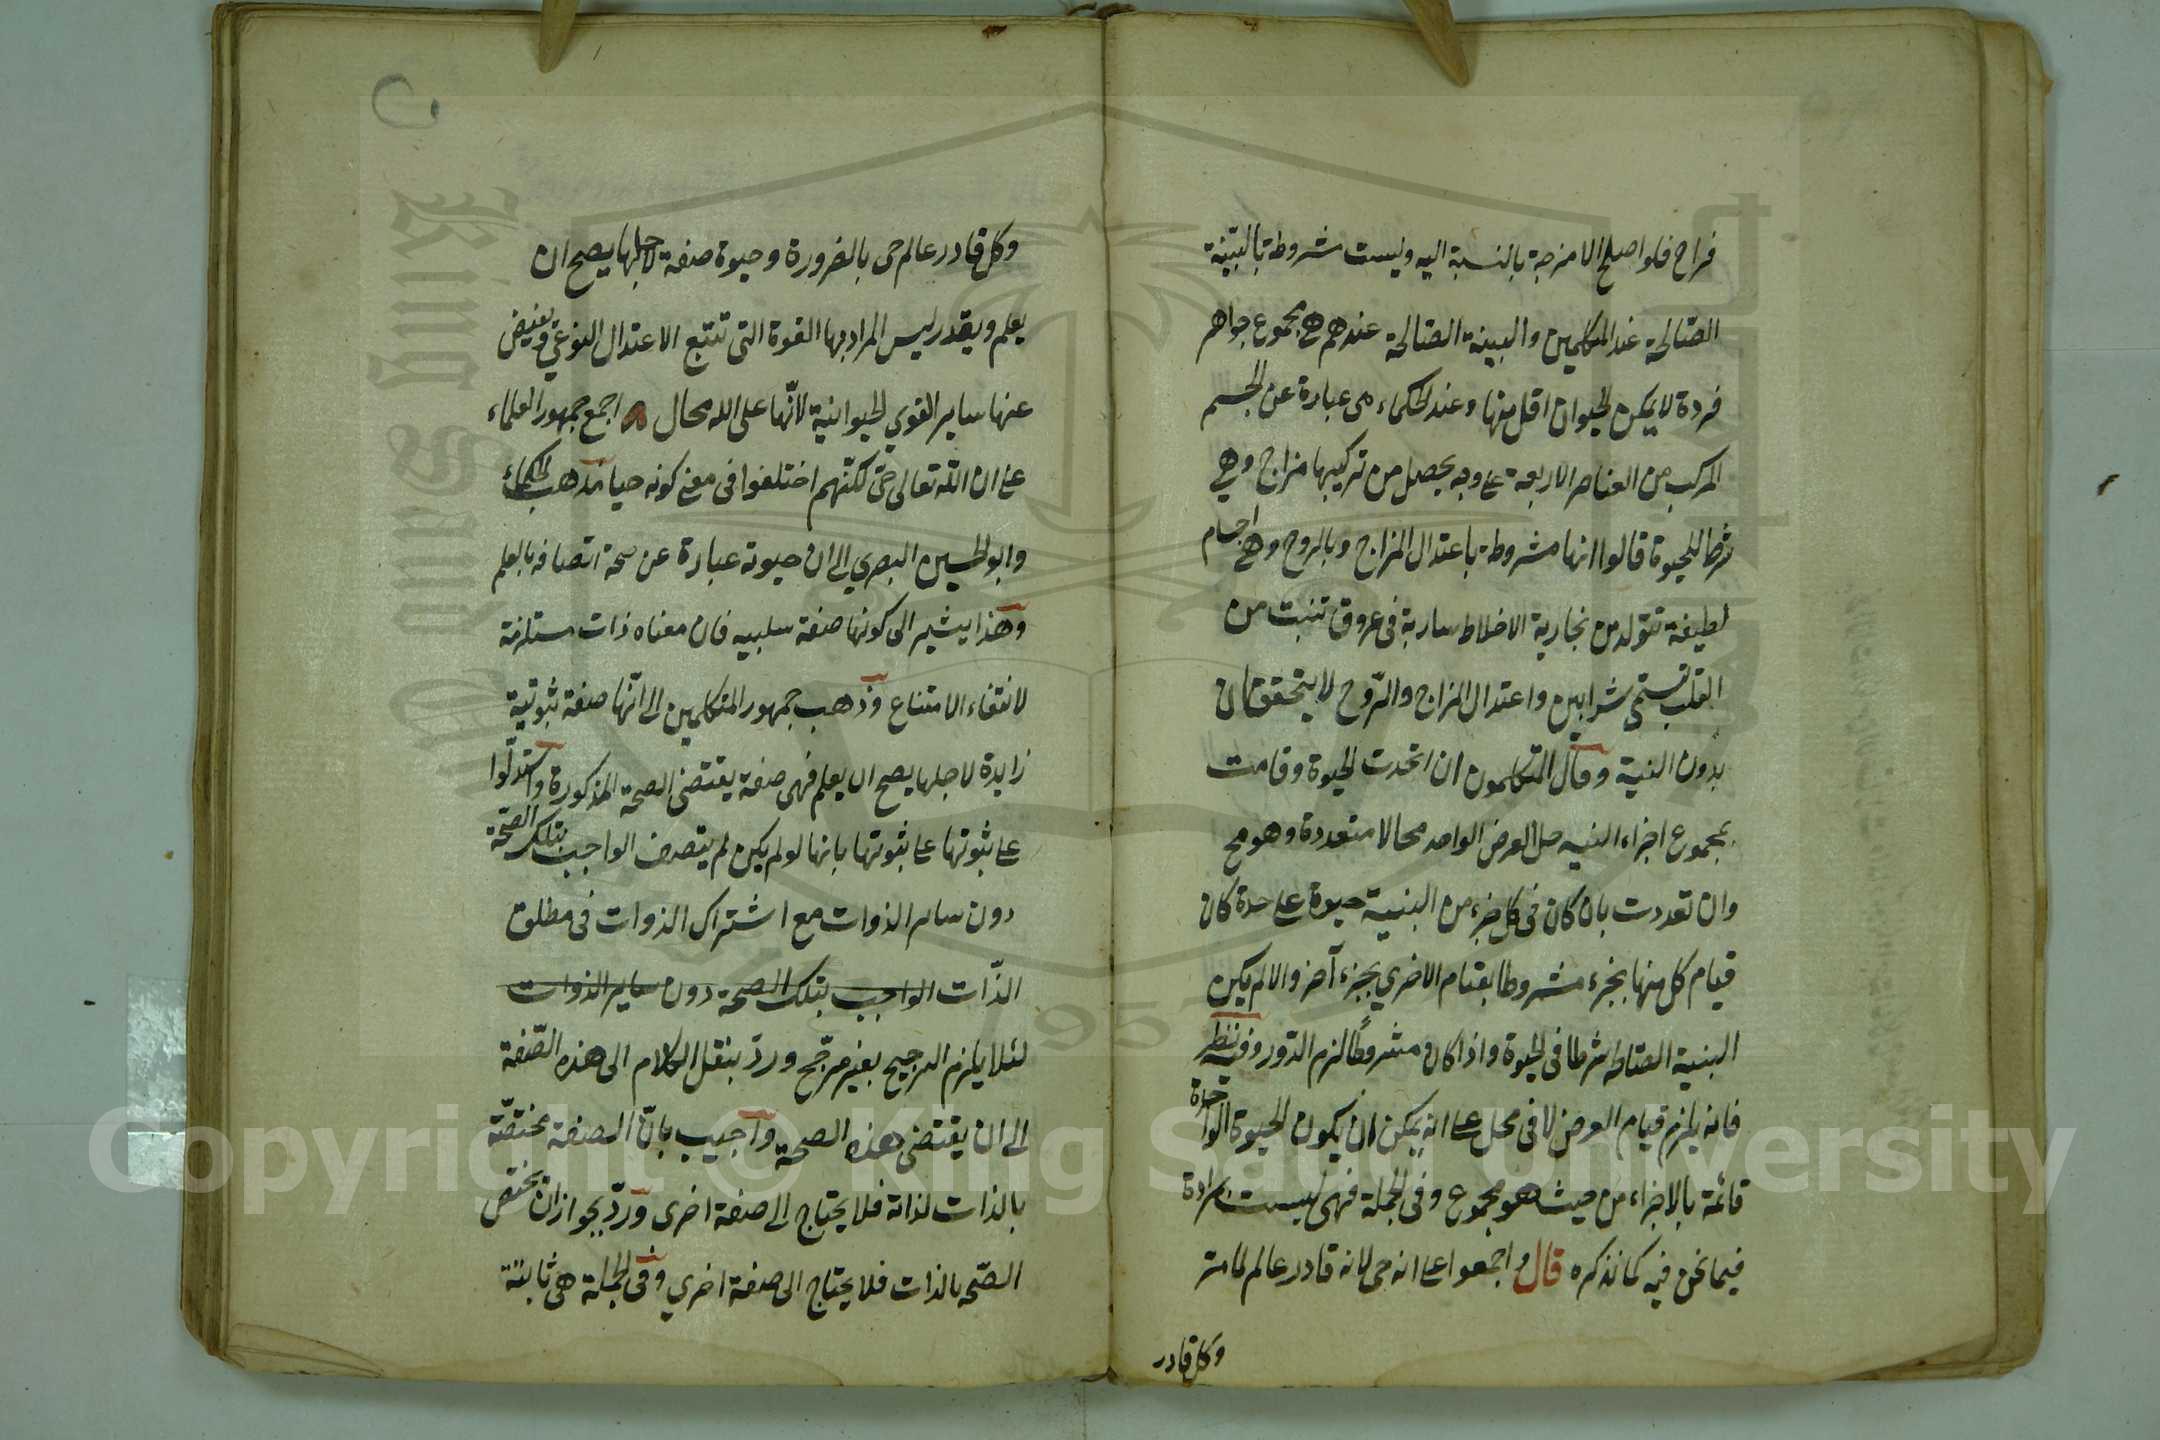 مزاج فلو اصلح الامزجة بالنسبة اليه وليست مشروطة بالبنية
الصالحة عند المتكلمين والبينة الصالحة عندهم هي مجموع جواهر
فردة لا يمكن الحيوان اقل منها وعند الحكماء هى عبارة عن الجسم
المركب من العناصر الاربعة على وجه يحصل من تركيبها مزاج وهي
شرط للحيوة قالوا انها مشروطة باعتدال المزاج وبالروح وهي اجسام
لطيفة تتولد من بخارية الاخلاط سارية فى عروق تنبت من
القلب تسمى شرايين واعتدال المزاج والرّوح لا يتحققان
بدون البنية وقال المتكلمون ان اتحدت الحيوة وقامت
بمجموع اجزاء البنيه حل العرض الواحد محالا متعددة وهو مح
وان تعددت بان كان فى كل جزء من البنية حيوة على حدة كان
قيام كل منها بجزء مشروطا بقيام الاخري بجزء آخر والا لم يكن
البنية الصالحة شرطا فى الحيوة واذا كان مشروطًا لزم الدّور وفيه نظر
فانه يلزم قيام العرض لا فى محل على انه يمكن ان يكون الحيوة الواحدة
قائمة بالاجزاء من حيث هو مجموع وفى الجملة فهى ليست مرادة
فيما نحن فيه كما نذكره قال واجمعوا على انه حى لانه قادر عالم لما مر
وكل قادر
وكل قادر عالم حى بالضرورة وحيوة صفة لاجلها يصح ان
يعلم ويقدر ليس المراد بها القوة التى تتبع الاعتدال النوعي ويفيض
عنها ساير القوي الحيوانية لانّها على الله محال اجمع جمهور العلماء
على ان اللّه تعالى حىّ لكنّهم اختلفوا فى معنى كونه حيا فذهب الحكماء
وابو الحسين البصري الى ان حيوته عبارة عن صحة اتصافه بالعلم
وهذا يشير الى كونها صفة سلبيه فان معناه ذات مستلزمة
لانتفاء الامتناع وذهب جمهور المتكلمين الى انّها صفة ثبوتية
زايدة لاجلها يصح ان يعلم فهى صفة يقتضى الصحة المذكورة واستدلّوا
على ثبوتها على ثبوتها بانها لو لم يكن لم يتصف الواجب بتلك الصّحّة
دون ساير الذوات مع اشتراك الذوات فى مطلق
الذّات الواجب بتلك الصحة دون ساير الذوات
لئلا يلزم الترجيح بغير مرجّح وردّ بنقل الكلام الى هذه الصّفة
الى ان يقتضى هذه الصحة واجيب بانّ الصفة مختصّة
بالذات لذاته فلا يحتاج الى صفة اخرى وردّ بجواز ان يختص
الصّحه بالذات فلا يحتاج الى صفة اخري وفى الجملة هى ثابتة
King Saud University
1957
Copyright © King Saud University